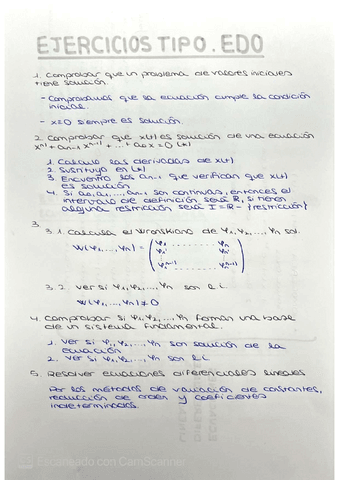 EJERCICIOS TIPO. EDO
1. Comprobar que un problema de valores iniciales
tiene solución.
- Comprobamos que la ecuación cumple la condición
inicial.
- x=0 siempre es solución.
2. Comprobar que x(t) es solución de una ecuación
xⁿ⁾ + aₙ₋₁ xⁿ⁻¹⁾ + ... + a₀x = 0 (*)
1. Calculo las derivadas de x(t)
2. Sustituyo en (*)
3. Encuentro los aₙ₋₁ que verifican que x(t)
es solución
4. Si a₀, a₁, ..., aₙ₋₁ son continuas, entonces el
intervalo de definición será ℝ, si tienen
alguna restricción será I = ℝ - {restricción}
3.
3.1. Calcula el Wronskiano de φ₁, φ₂, ..., φₙ sol.
W(φ₁, ..., φₙ) = (φ₁ ... φₙ
φ₁' ... φₙ'
φ₁ⁿ⁻¹⁾ ... φₙⁿ⁻¹⁾)
3.2. Ver si φ₁, φ₂, ..., φₙ son l.i.
W(φ₁, ..., φₙ) ≠ 0
4. Comprobar si φ₁, φ₂, ..., φₙ forman una base
de un sistema fundamental.
1. Ver si φ₁, φ₂, ..., φₙ son solución de la
ecuación
2. Ver si φ₁, φ₂, ..., φₙ son l.i.
5. Resolver ecuaciones diferenciales lineales
Por los métodos de variación de constantes,
reducción de orden y coeficientes
indeterminados.
Escaneado con CamScanner